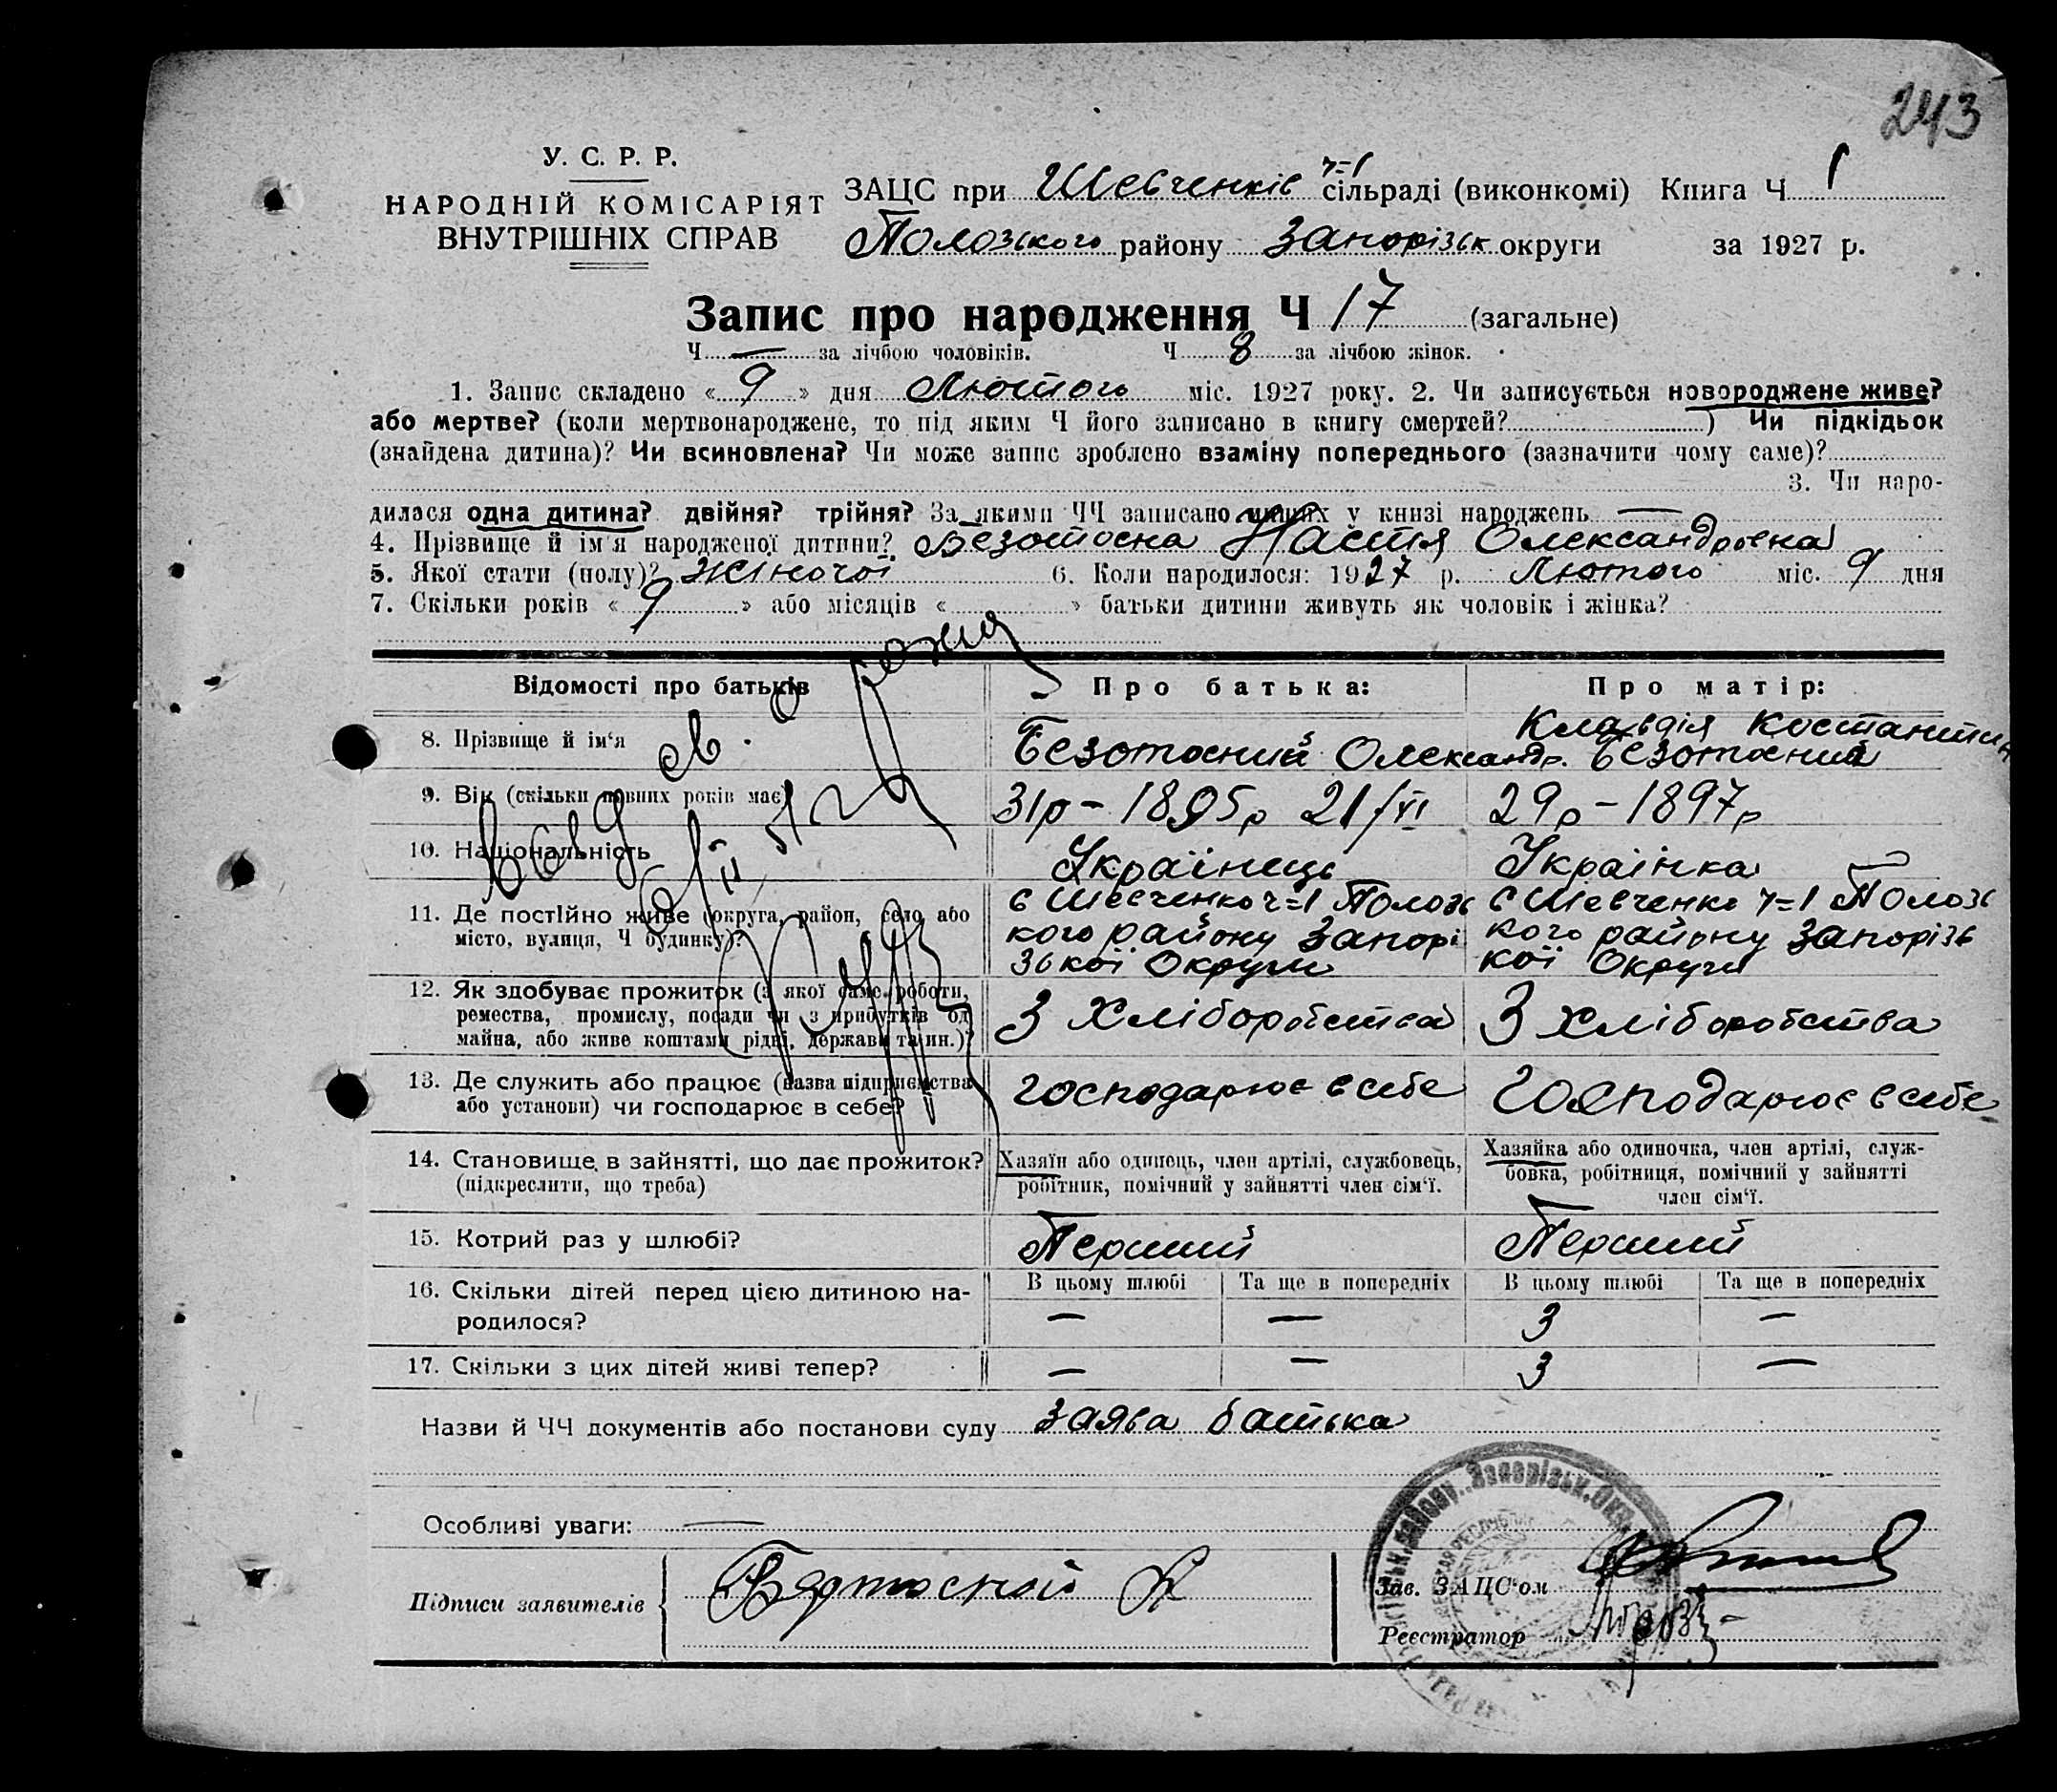 243
У. С. Р. Р.
НАРОДНІЙ КОМІСАРІЯТ
ВНУТРІШНІХ СПРАВ
ЗАЦС при Шевченків ч=1 сільраді (виконкомі) Книга Ч 1
Полозького району Запорізьк округи за 1927 р.
Запис про народження Ч 17 (загальне)
Ч — за лічбою чоловіків. Ч 8 за лічбою жінок.
1. Запис складено « 9 » дня Лютого міс. 1927 року. 2. Чи записується новороджене живе?
або мертве? (коли мертвонароджене, то під яким Ч його записано в книгу смертей? ) Чи підкідьок
(знайдена дитина)? Чи всиновлена? Чи може запис зроблено взаміну попереднього (зазначити чому саме)?
3. Чи наро-
дилася одна дитина? двійня? трійня? За якими ЧЧ записано инших у книзі народжень —
4. Прізвище й ім'я народженої дитини? Безотосна Настя Олександровна
5. Якої стати (полу)? Жіночої 6. Коли народилося: 1927 р. Лютого міс. 9 дня
7. Скільки років « 9 » або місяців « » батьки дитини живуть як чоловік і жінка?
Відомості про батьків Про батька: Про матір:
8. Прізвище й ім'я Безотосний Олександр. Клавдія Костантин Безотосний
9. Вік (скільки повних років має) 31р – 1895р 21/VI 29р – 1897р
10. Національність Українець Українка
11. Де постійно живе (округа, район, село або
місто, вулиця, Ч будинку)?
с Шевченко ч=1 Полозь
кого району Запорі
зької Округи
с Шевченко ч=1 Полозь
кого району Запорізь
кої Округи
12. Як здобуває прожиток (з якої саме роботи,
ремества, промислу, посади чи з прибутків од
майна, або живе коштами рідні, держави та ин.)?
З Хліборобства З хліборобства
13. Де служить або працює (назва підприємства
або установи) чи господарює в себе?
господарює в себе Господарює в себе
14. Становище в зайнятті, що дає прожиток?
(підкреслити, що треба)
Хазяїн або одинець, член артілі, службовець,
робітник, помічний у зайнятті член сім'ї.
Хазяйка або одиночка, член артілі, служ-
бовка, робітниця, помічний у зайнятті
член сім'ї.
15. Котрий раз у шлюбі? Перший Перший
16. Скільки дітей перед цією дитиною на-
родилося?
В цьому шлюбі Та ще в попередніх В цьому шлюбі Та ще в попередніх
— — 3 —
17. Скільки з цих дітей живі тепер? — — 3 —
Назви й ЧЧ документів або постанови суду заява батька
Особливі уваги: —
Підписи заявителів
Зав. ЗАЦС'ом
Реєстратор
району Запорізьк. Окр.